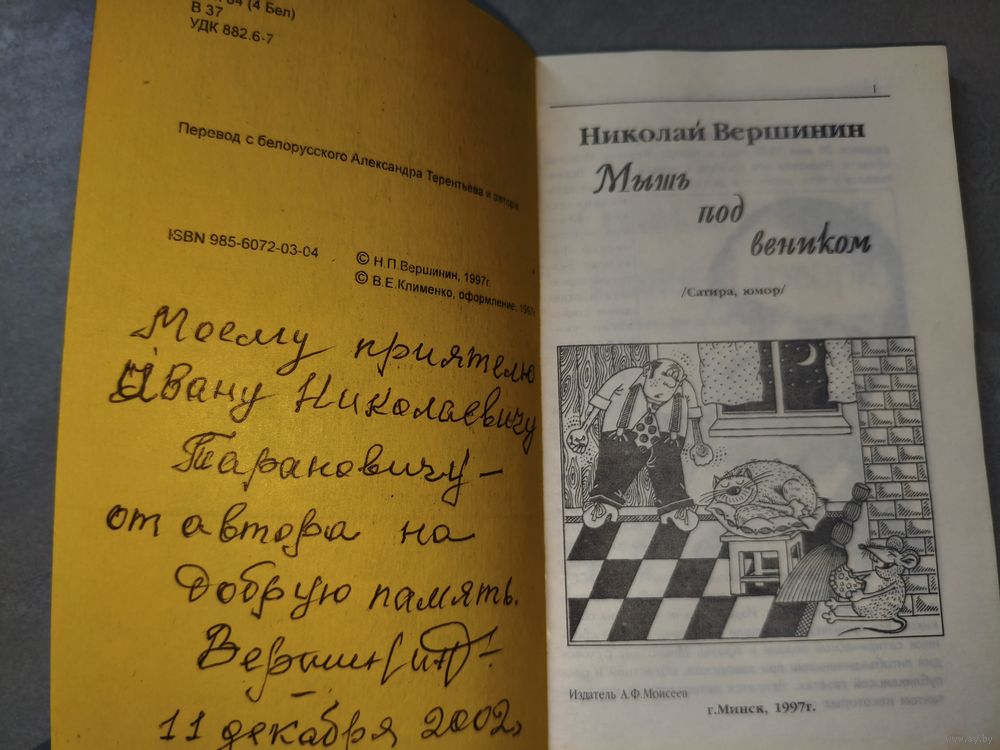 84 (4 Бел)
В 37
УДК 882.6-7
Перевод с белорусского Александра Терентьева и автора
ISBN 985-6072-03-04
© Н.П.Вершинин, 1997г.
© В.Е.Клименко, оформление, 1997г
Моему приятелю
Ивану Николаевичу
Тарановичу –
от автора на
добрую память.
11 декабря 2002
1
Николай Вершинин
Мышь
под
веником
/Сатира, юмор/
Издатель А.Ф.Моисеев
г.Минск, 1997г.
www.ay.by